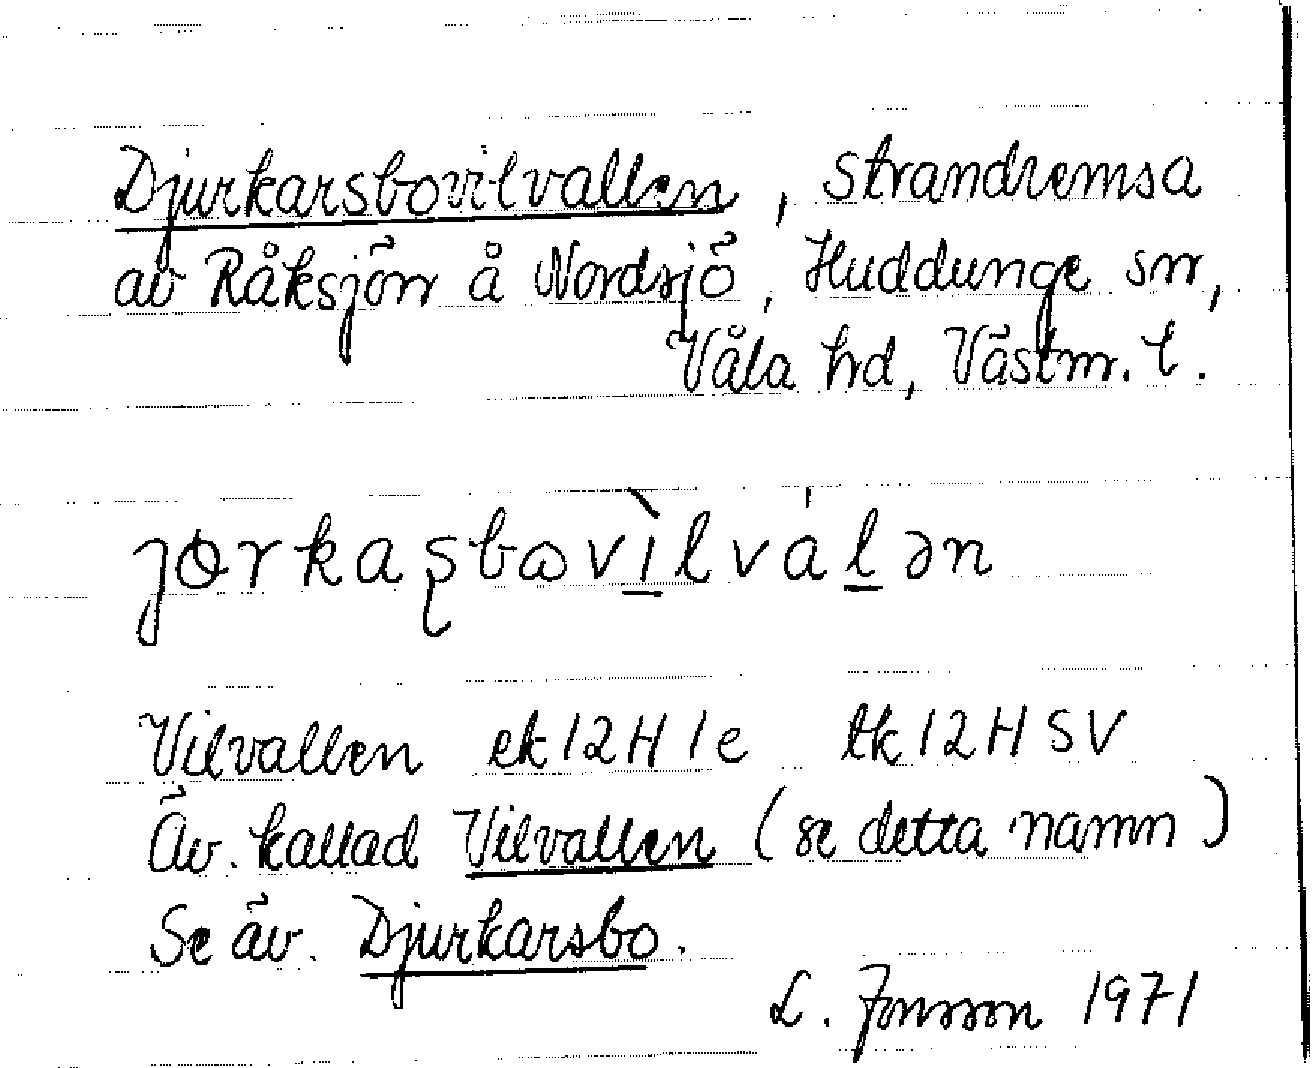 Djurkarsbovilvallen, strandremsa
av Råksjön å Nordsjö, Huddunge sn,
Våla hd, Västm. l.
jɵrkaʂbɷvìlválən
Vilvallen ek 12H 1e tk 12H SV
Äv. kallad Vilvallen (se detta namn)
Se äv. Djurkarsbo.
L. Jonsson 1971